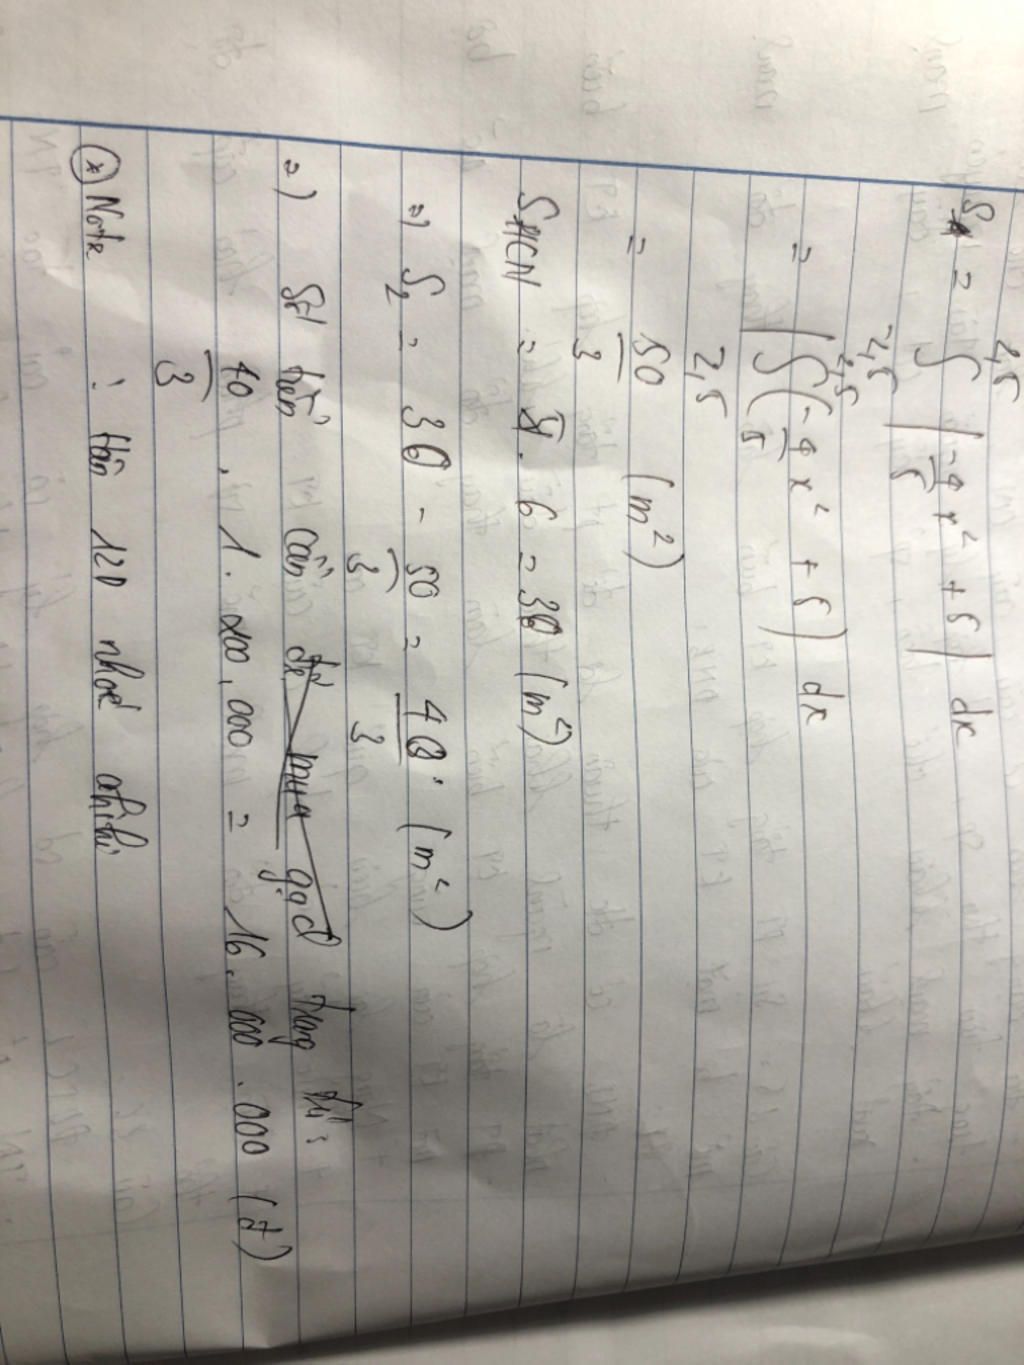 S₁ = ∫ |-4/5 x² + 5| dx
2,5
2,5
= |∫ (-4/5 x² + 5) dx
2,5
2,5
= 50/3 (m²)
SHCN = 5 . 6 = 30 (m²)
=) S₂ = 30 - 50/3 = 40/3 (m²)
=) Số tiền cần để mua gạch trang trí :
40/3 . 1.200.000 = 16.000.000 (đ)
(*) Note : tân 120 nhoé